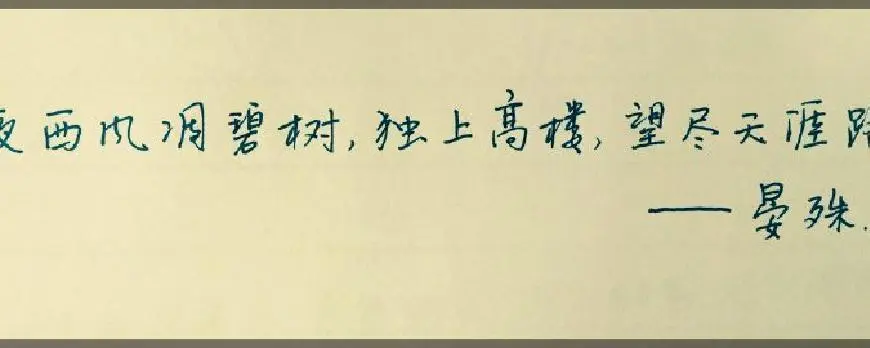 夜西风凋碧树,独上高楼,望尽天涯路
——晏殊.